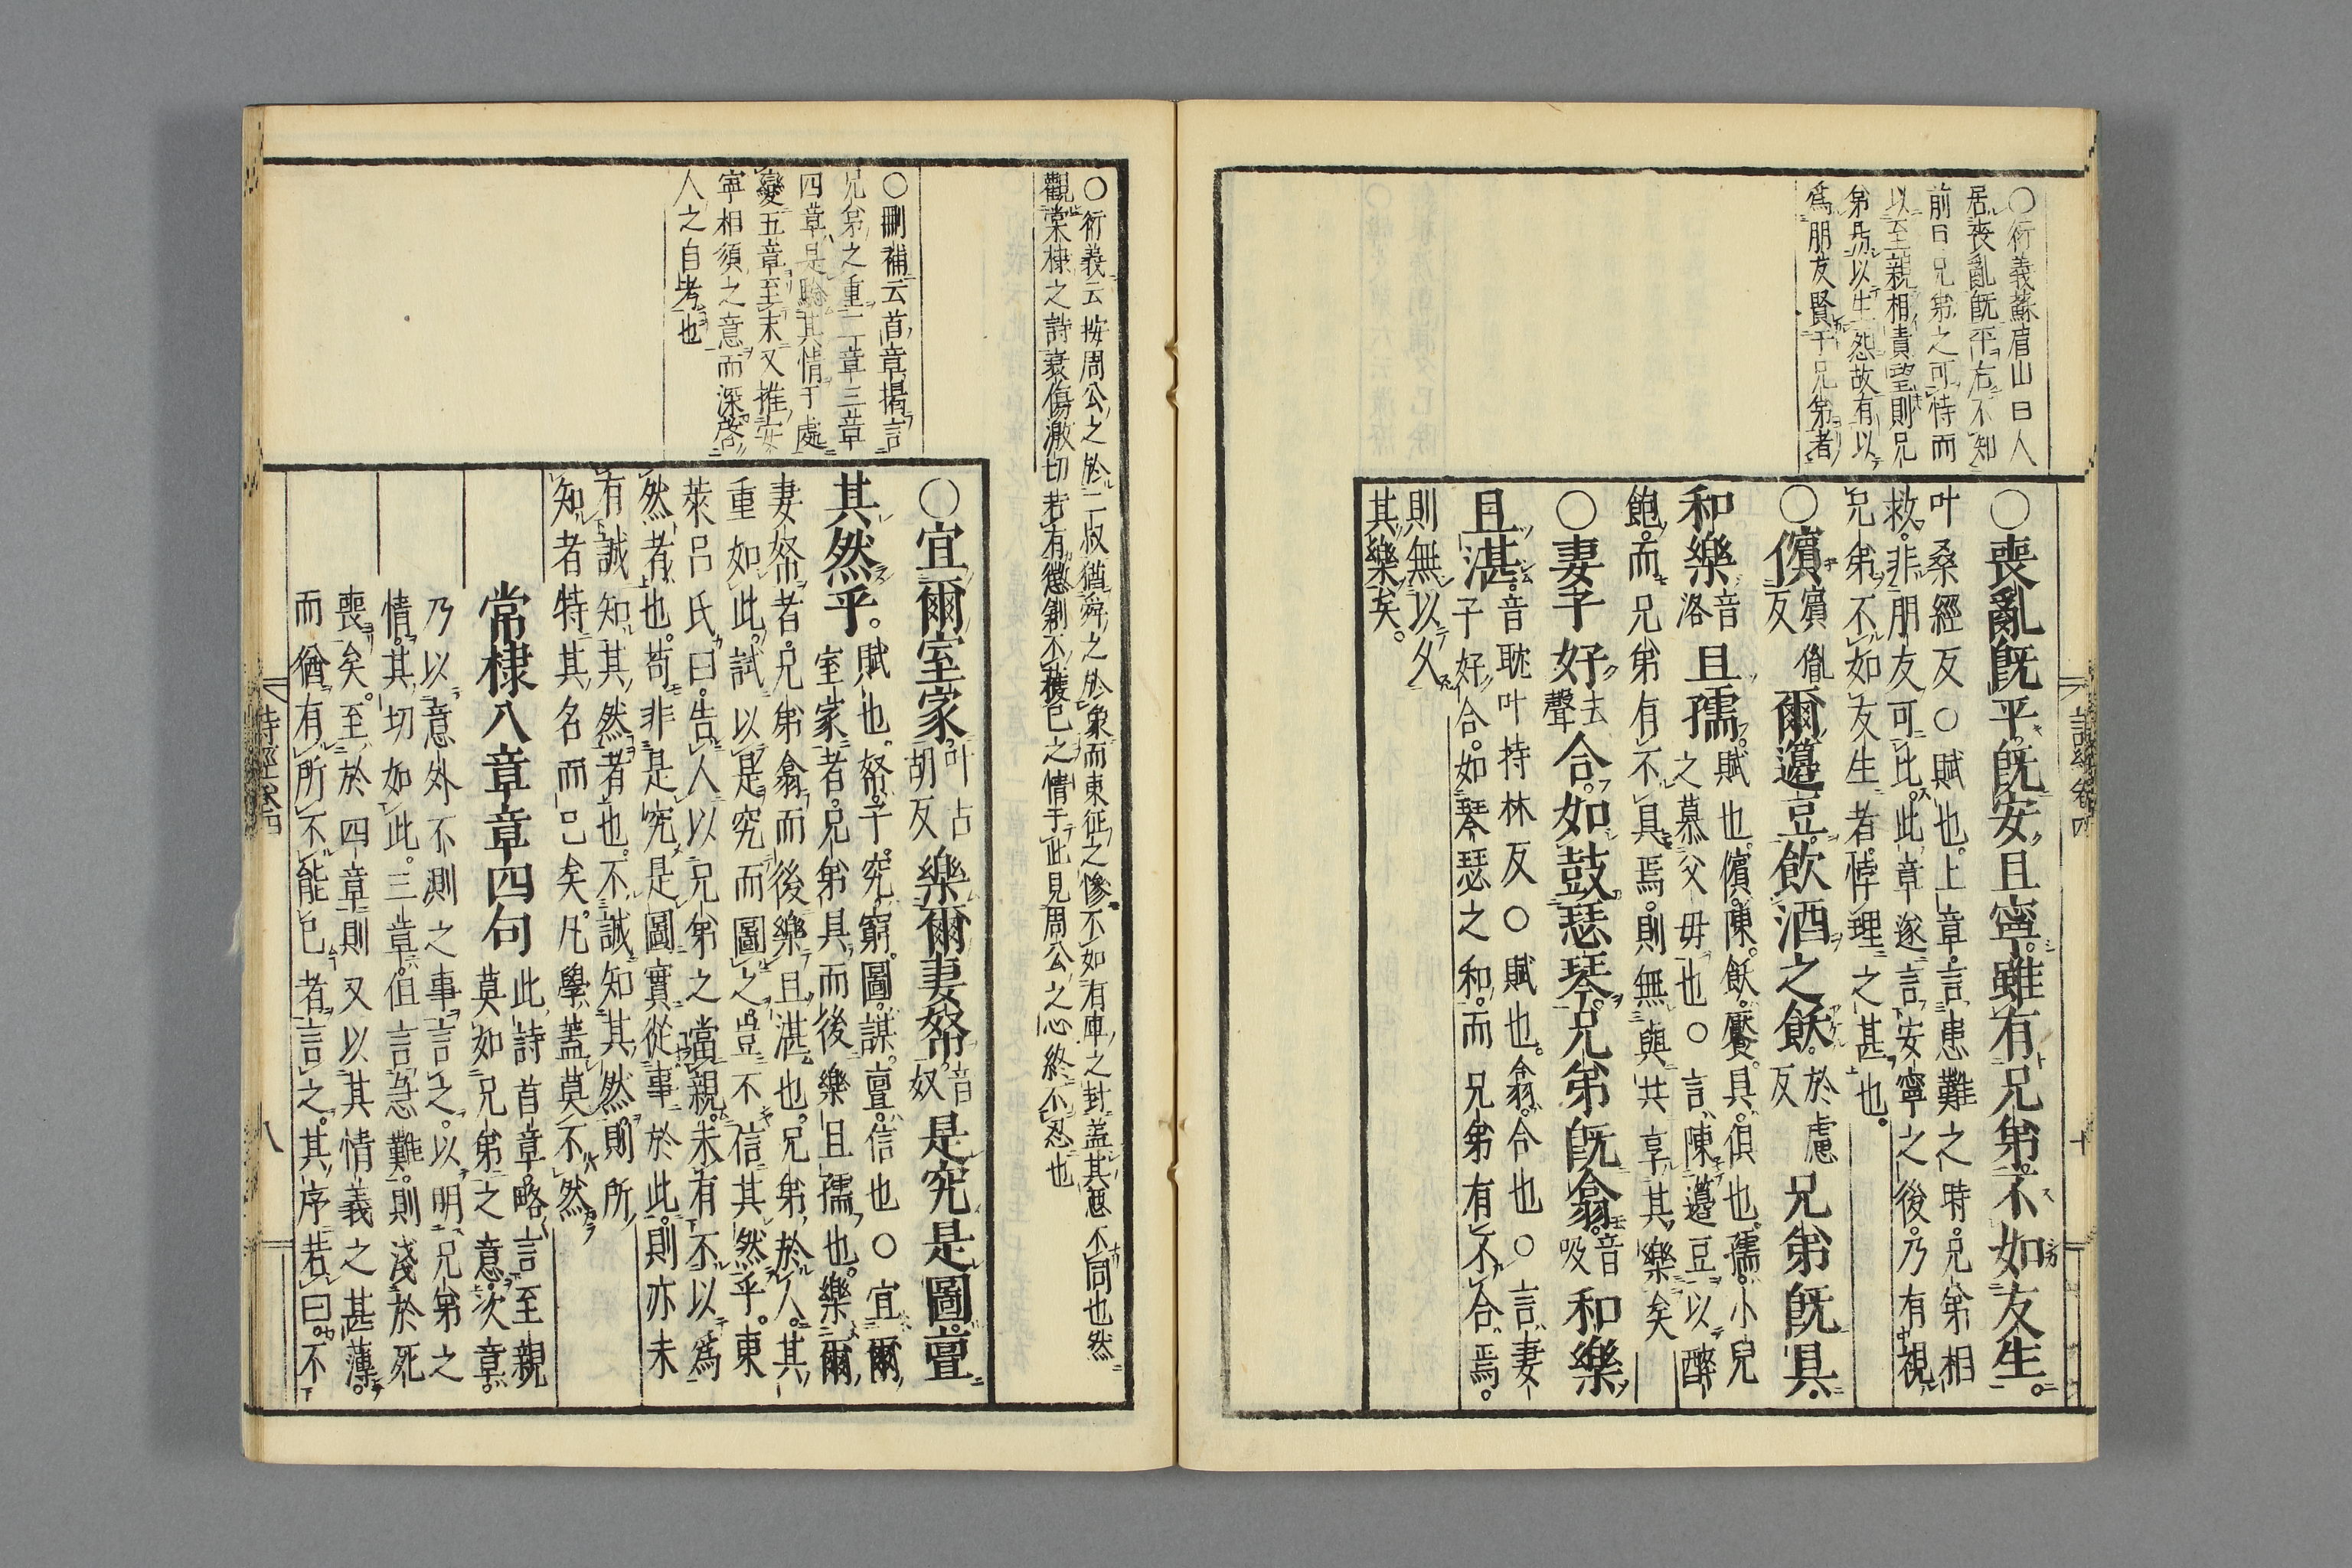 ○衍義蘇眉山曰人
居喪亂旣平右不知
前日兄弟之可恃而
以至親相責望則兄
弟易以生怨故有以
爲朋友賢于兄弟者
○喪亂旣平旣安且寧雖有兄弟不如友生
叶桑經反○賦也上章言患難之時兄弟相
救非朋友可比此章遂言安寧之後乃有視
兄弟不如友生者悖理之甚也
○儐賓胤反爾籩豆飮酒之飫於慮反兄弟旣具
和樂音洛且孺賦也儐陳飫饜具俱也孺小兒
之慕父毋也○言陳籩豆以醉
飽而兄弟有不具焉則無與共享其樂矣
○妻子好去聲合如鼓瑟琴兄弟旣翕音吸和樂
且湛音耽叶持林反○賦也翕合也○言妻
子好合如琴瑟之和而兄弟有不合焉
則無以久
其樂矣
詩經卷四
十
○衍義云按周公之於二叔猶舜之於象而東征之慘不如有庳之封蓋其惡不同也然
觀棠棣之詩哀傷激切若有懲創不穫已之情于此見周公之心終不忍也
○刪補云首章揭言
兄弟之重二章三章
四章是驗其情于處
變五章至末又推安
寧相須之意而深啓
人之自考也
○宜爾室家叶古胡反樂爾妻孥音奴是究是圖亶
其然乎賦也孥子究窮圖謀亶信也○宜爾
室家者兄弟具而後樂且孺也樂爾
妻孥者兄弟翕而後樂且湛也兄弟於人其
重如此試以是究而圖之豈不信其然乎東
萊呂氏曰告人以兄弟之當親未有不以爲
然者也苟非是究是圖實從事於此則亦未
有誠知其然者也不誠知其然則所
知者特其名而已矣凡學蓋莫不然
常棣八章章四句此詩首章略言至親
莫如兄弟之意次章
乃以意外不測之事言之以明兄弟之
情其切如此三章但言急難則淺於死
喪矣至於四章則又以其情義之甚薄
而猶有所不能已者言之其序若曰不
詩經卷四
八